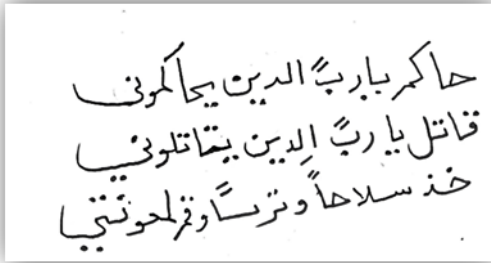 حاكم يارب الدين يحاكموني
قاتل يا رب الدين يقاتلوني
خذ سلاحاً وترساً وقم لمعونتي